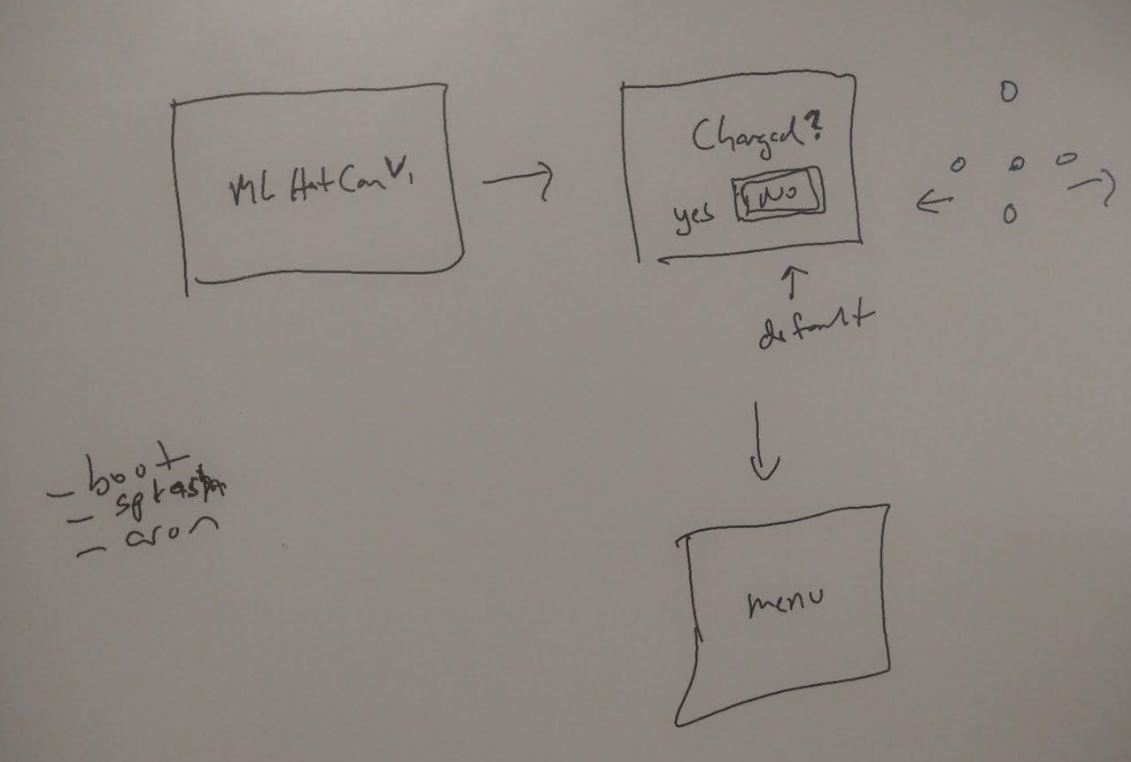 ML Hat Cam V1
Charged?
yes No
default
- boot
- splash
- cron
menu